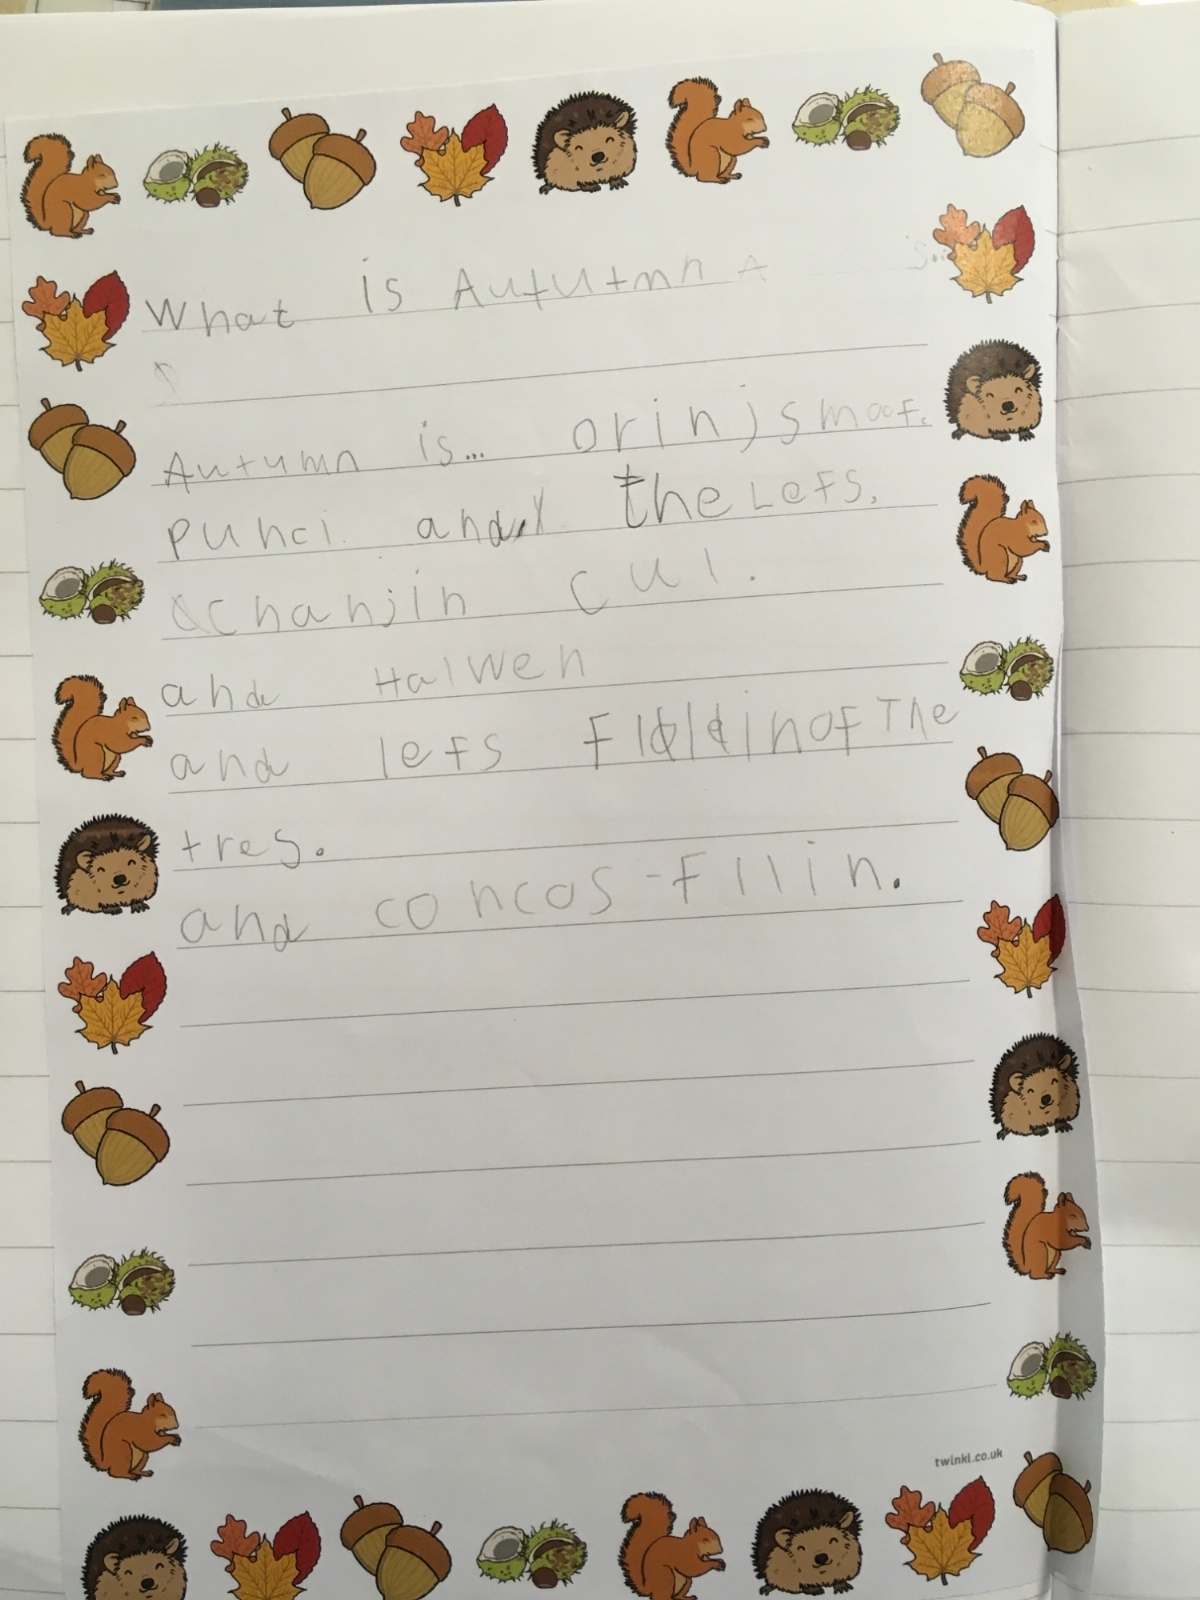 What is Aututmn A is..
Autumn is... orinj smoof.
punci. and the Lefs.
chanjin cul.
and Halwen
and lefs Fldldinof The
tres.
and concos-Fllin.
twinkl.co.uk